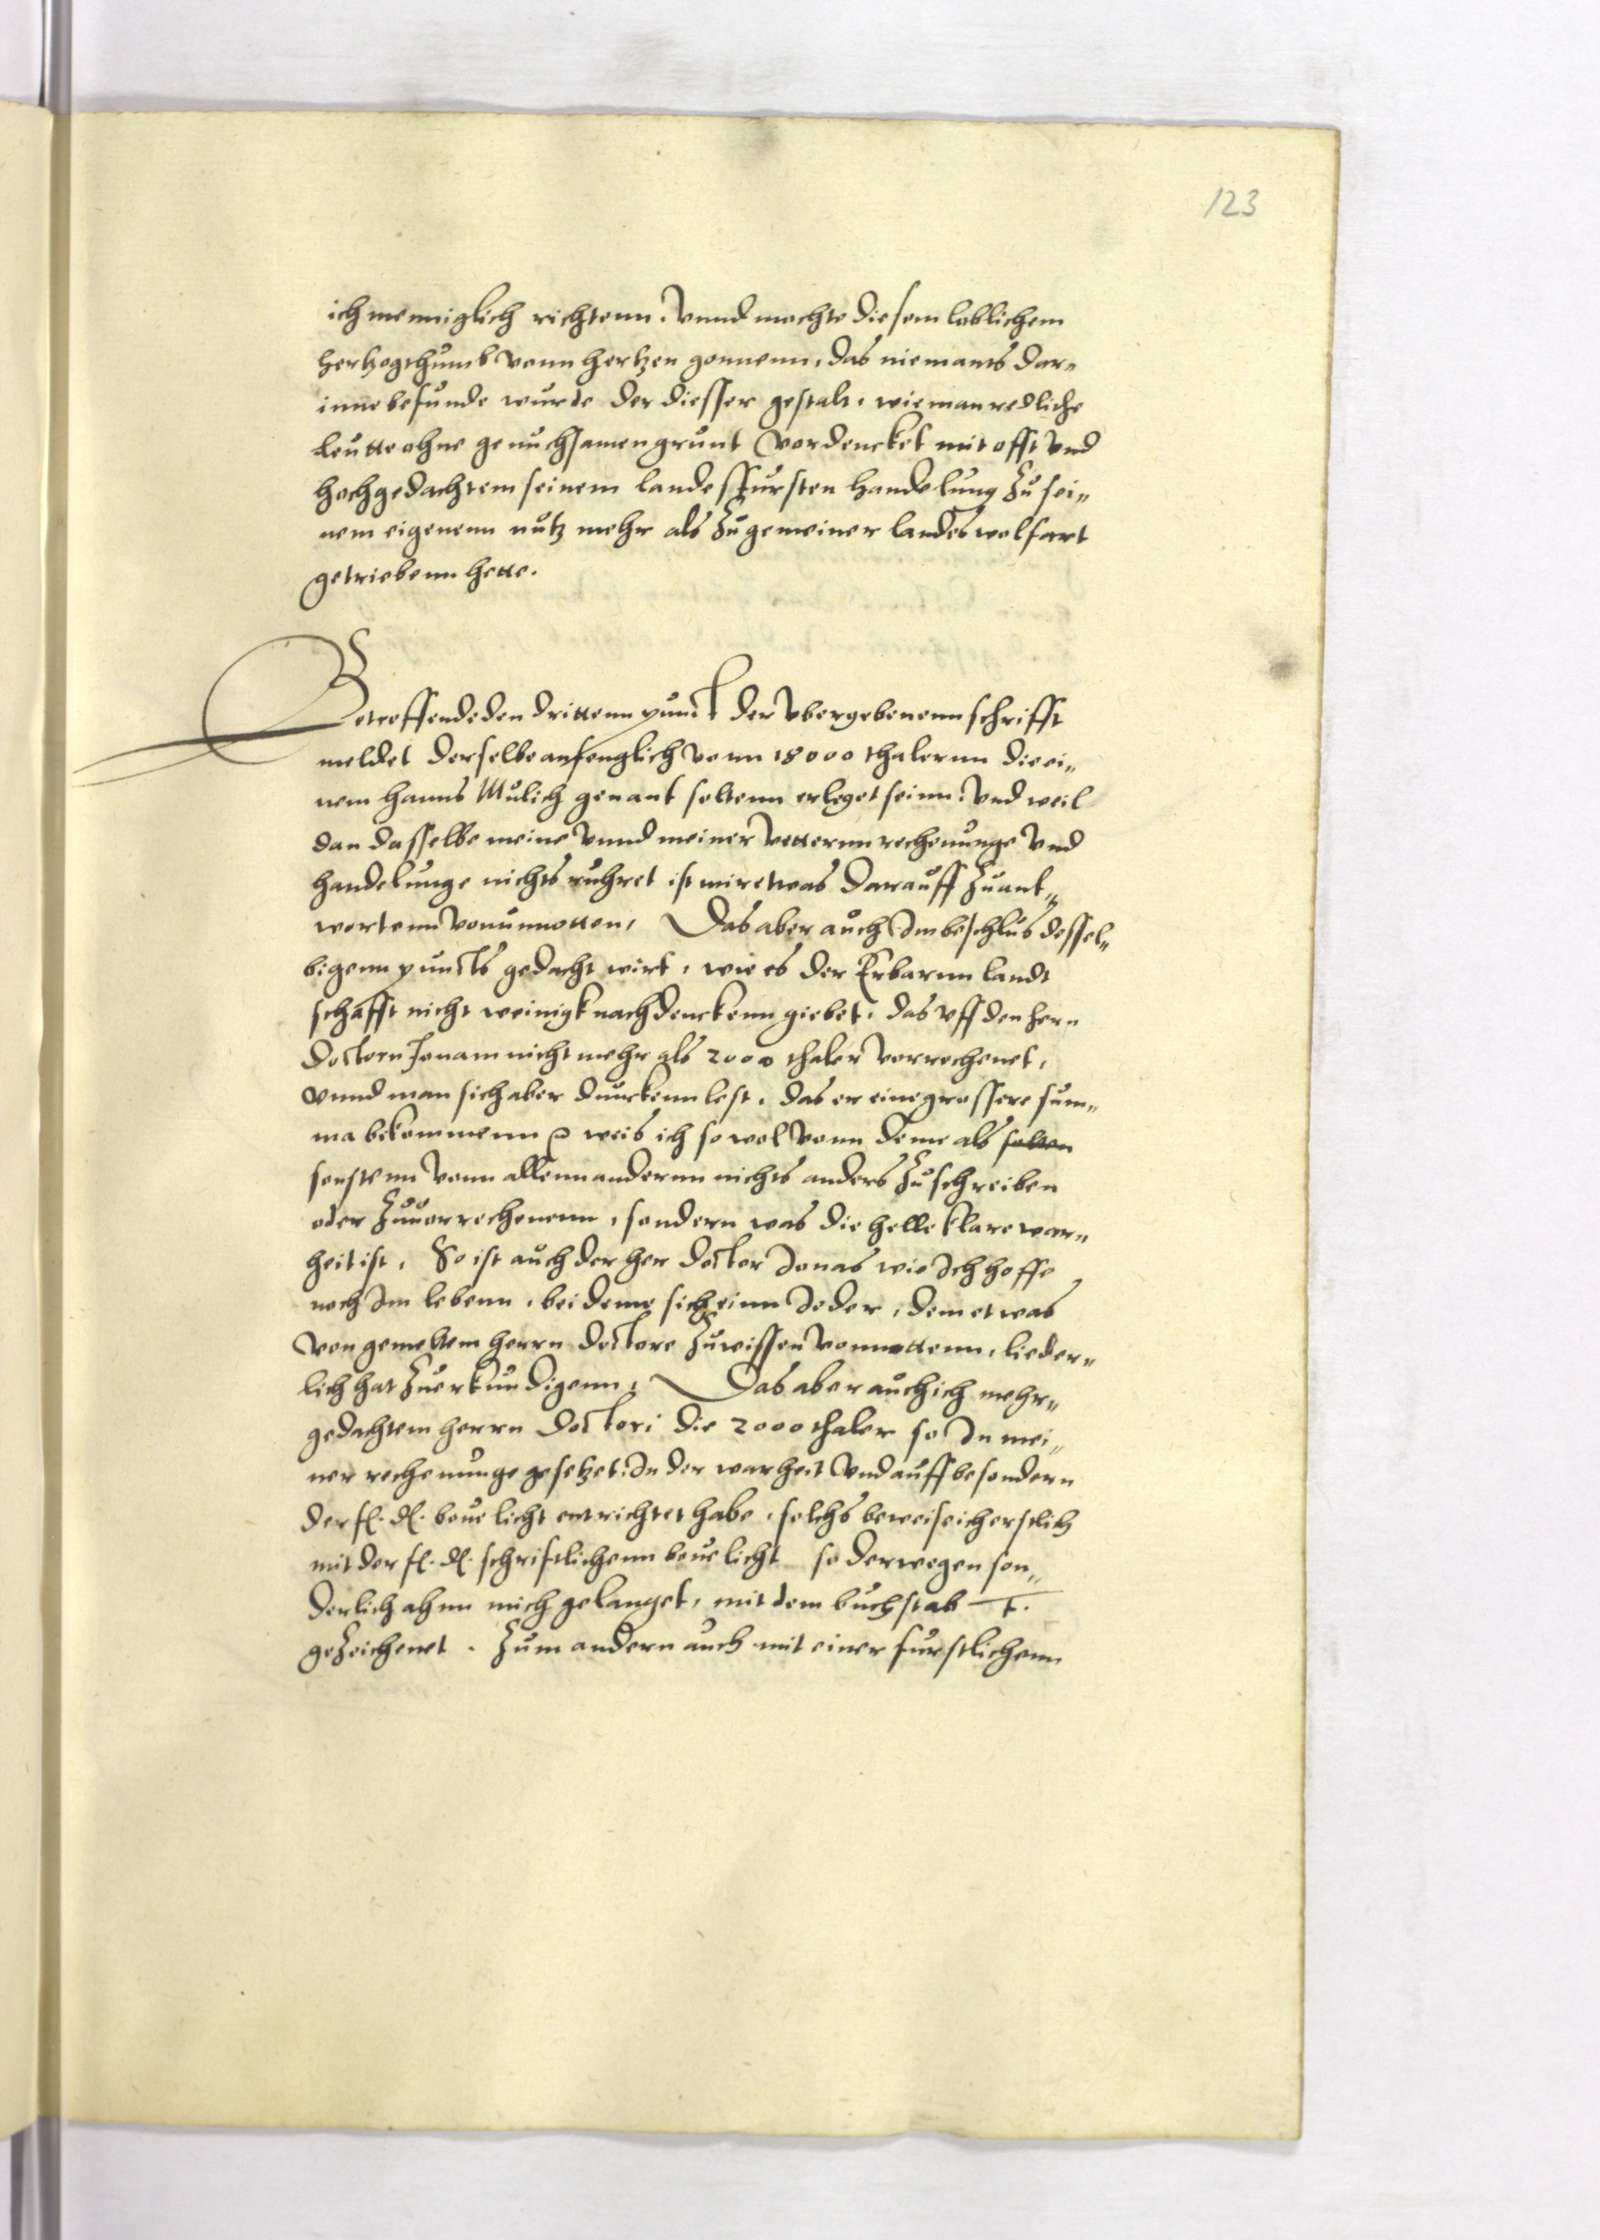 123
ich menniglich richtenn. Vnnd mochte diesem loblichem
hertzogthumb vonn hertzen gonnenn, das niemants dar„
inne befunde wurde der diesser gestalt, wie man redliche
leutte ohne genuchsamen grunt vordencket mit offt vnd
hochgedachtem seinem landesfursten handelung zu sei„
nem eigenenn nutz mehr als zu gemeiner landes wolfart
getriebenn hette.
Betreffende den drittenn punct der vbergebenenn schrifft
meldet derselbe anfenglich vonn 18000 thalernn die ei„
nem Hanns Mulich genant soltenn erleget seinn. Vnd weil
dan dasselbe meine vnnd meiner vetternn rechenunge vnd
handelunge nichts ruhret ist mir etwas darauff zu ant„
wortenn vonunnotten, Das aber auch Im beschlus dessel„
bigenn puncts gedacht wirt, wie es der Erbarnn landt
schafft nicht weinigk nachdenckenn giebet, das vff den hern
Doctorn Jonam nicht mehr als 2000 thaler vorrechenet,
vnnd man sich aber dunckenn lest, das er eine grossere sum„
ma bekommenn weis ich so wol vonn deme als solten
sonstenn vonn allenn andernn nichts anders zu schreiben
oder zuuorrechenenn, sondern was die helle klare war„
heit ist, So ist auch der her Doctor Jonas wie Ich hoffe
noch Im lebenn, bei deme sich einn Jeder, dem etwas
von gemeltem herrn Doctore zu wissen vonnottenn, lieder„
lich hat zu erkundigenn, Das aber auch ich mehr„
gedachtem herrn Doctori die 2000 thaler so In mei„
ner rechenunge gesetzet. In der warheit vnd auff besondern
der fl. dl. beuelicht entrichtet habe, solchs beweise ich erstlich
mit der fl. dl. schrifftlichenn beuelicht so derwegen son„
derlich ahnn mich gelanget, mit dem buchstab T.
gezeichenet. Zum andern auch mit einer furstlichenn